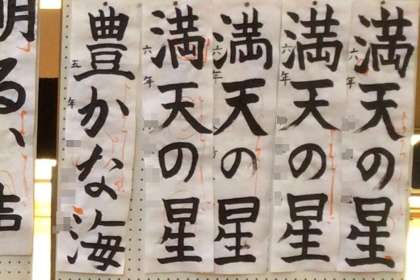 満天の星
六年
満天の星
六年
満天の星
六年
満天の星
六年
豊かな海
五年
明るい